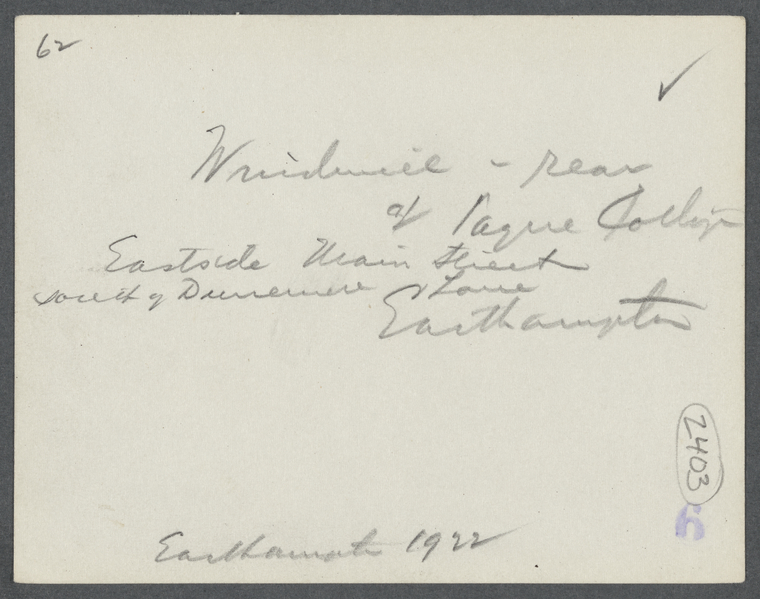 62
Windmill - rear
of Payne Cottage
Eastside Main Street
south of Dunemere Lane
Easthampton
2403
5
Easthampton 1922